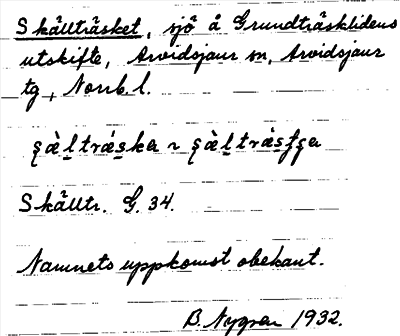 Skällträsket, sjö å Grundträsklidens
utskifte, Arvidsjaur sn, Arvidsjaur
tg, Norrb. l.
şàl̲tràs̲ka ~ şàl̲tràs̲ʃşa
Skälltr. G. 34.
Namnets uppkomst obekant.
B. Nygren 1932.